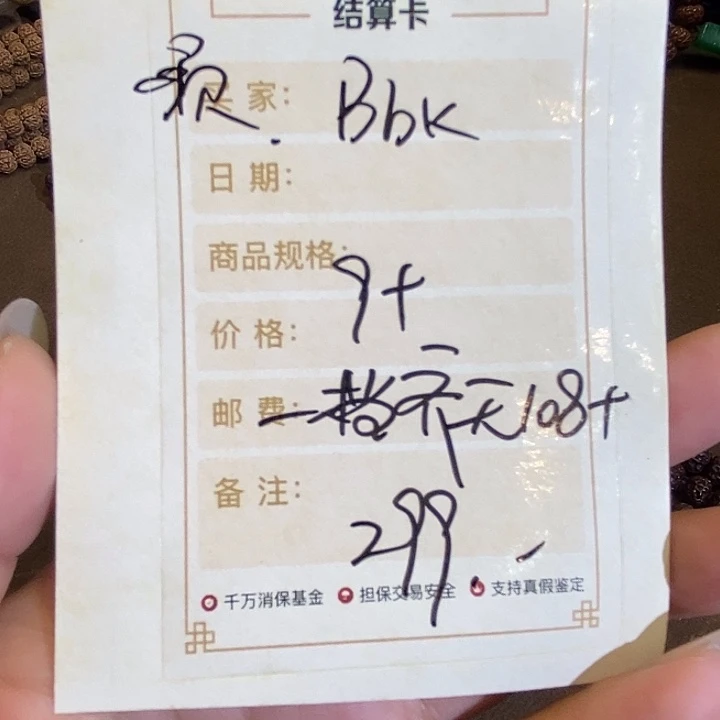 结算卡
买家: Bbk
日期:
商品规格: 9+
价格:
邮费: 一档齐天108+
备注: 299.-
千万消保基金 担保交易安全 支持真假鉴定